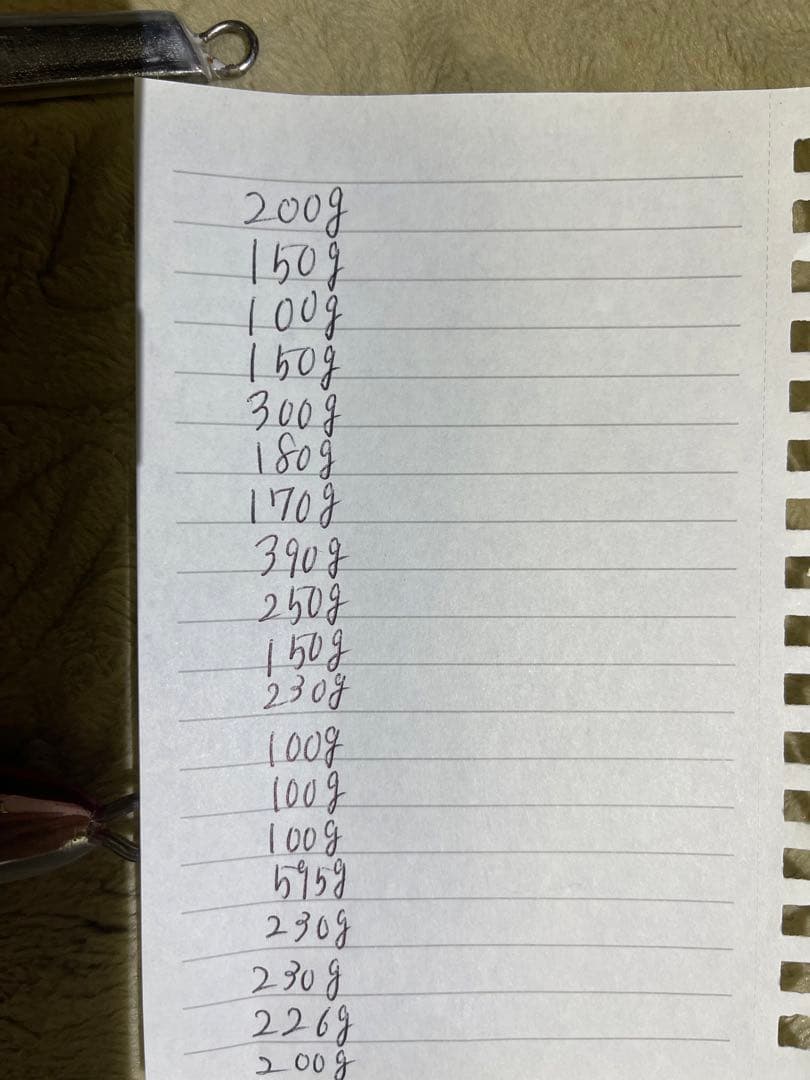 200g
150g
100g
150g
300g
180g
170g
390g
250g
150g
230g
100g
100g
100g
595g
230g
230g
226g
200g